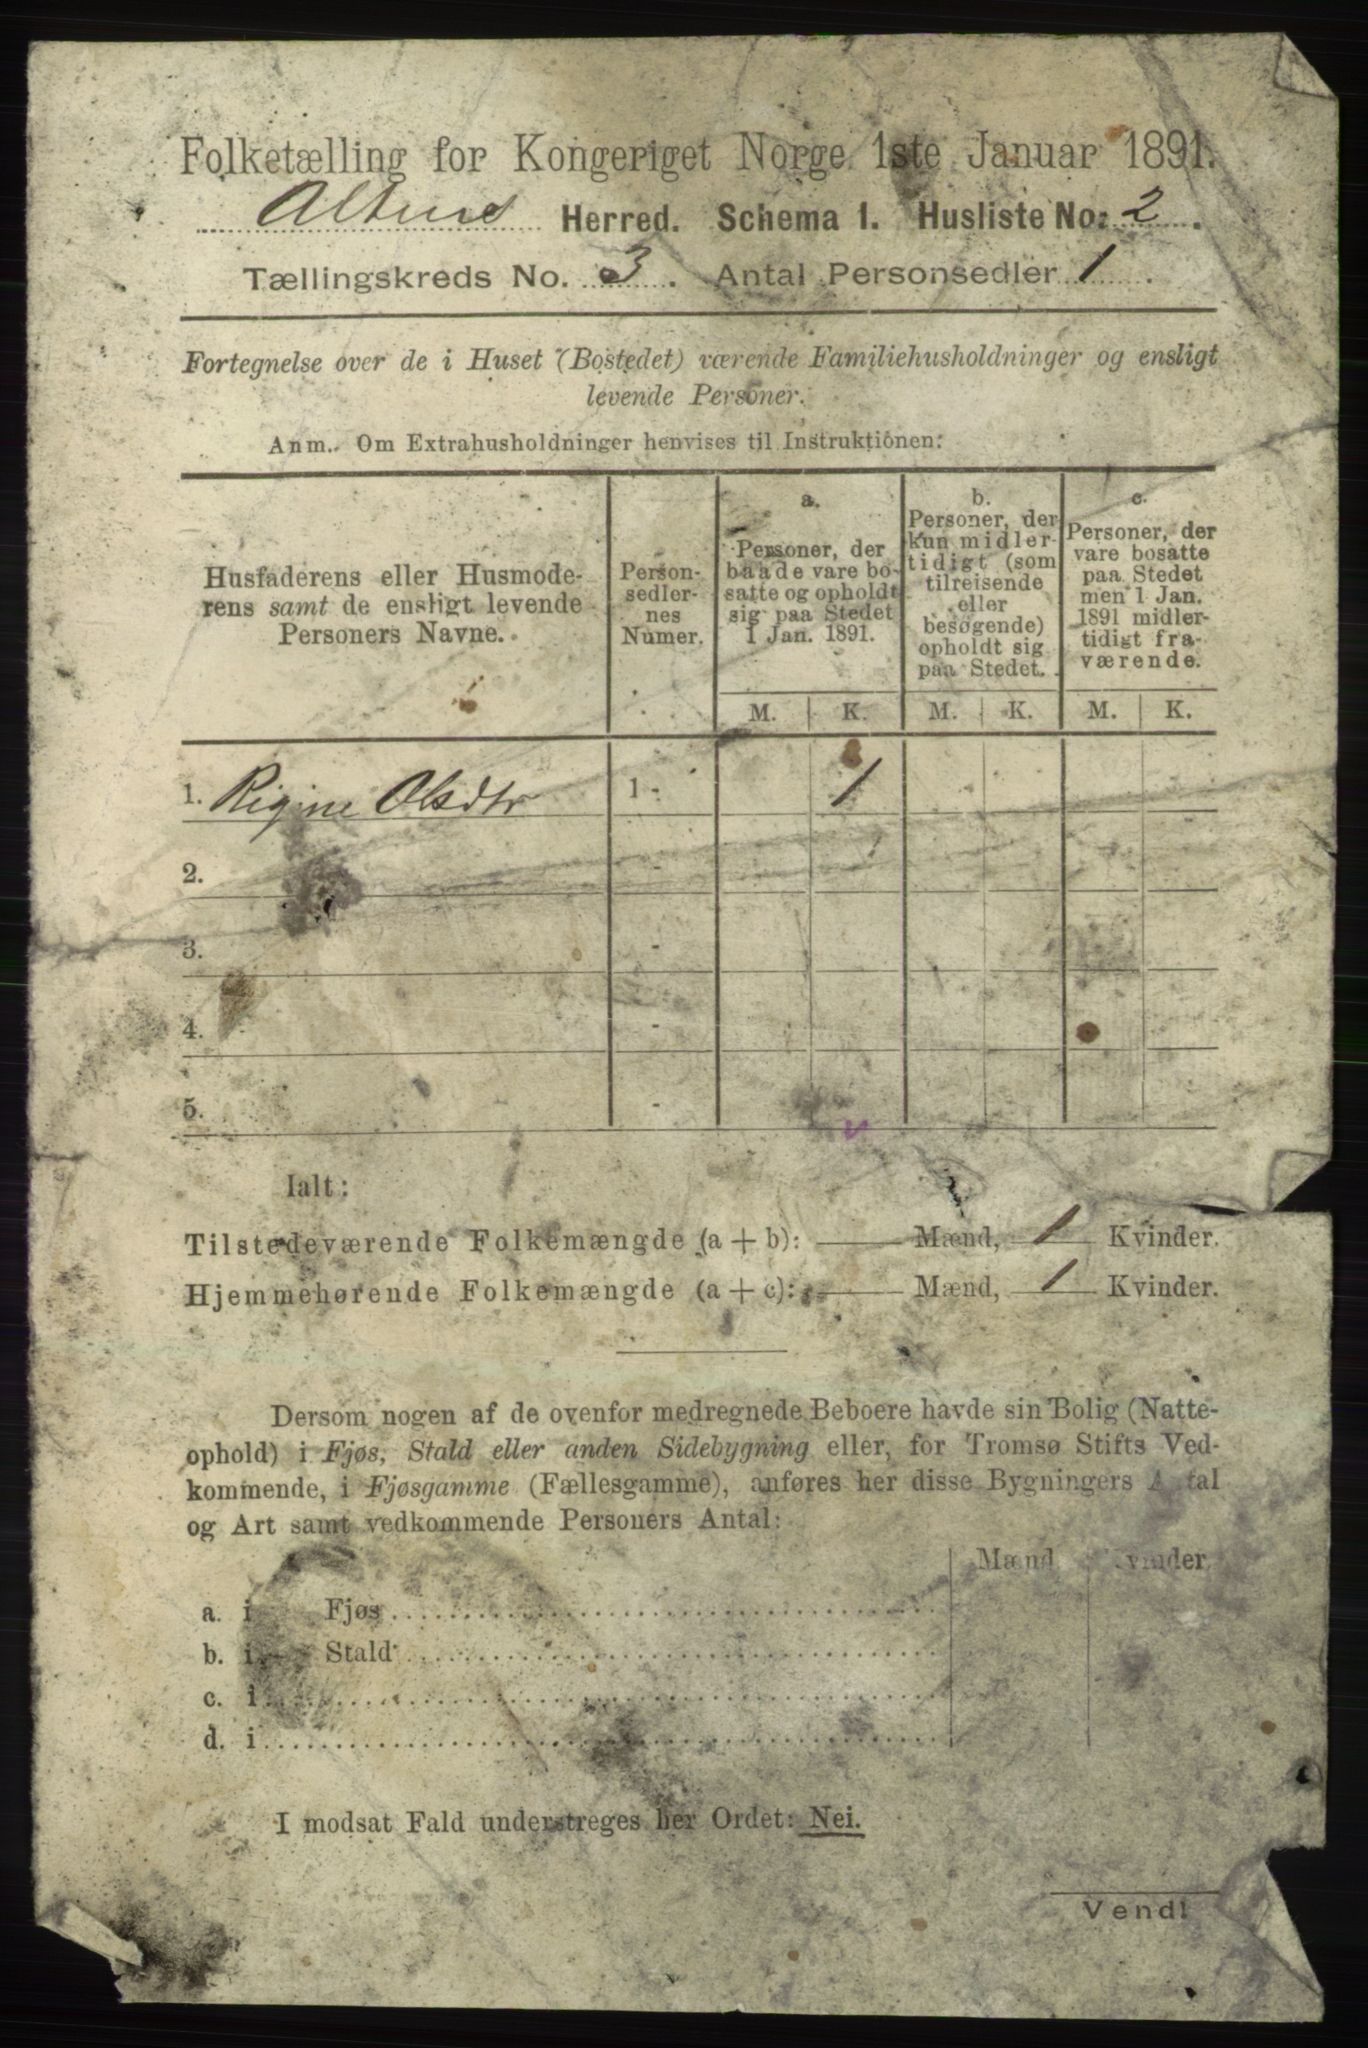 Folketælling for Kongeriget Norge 1ste Januar 1891.
Herred. Schema 1. Husliste No: 2.
Tællingskreds No. 3. Antal Personsedler 1.
Fortegnelse over de i Huset (Bostedet) værende Familiehusholdninger og ensligt
levende Personer.
Anm. Om Extrahusholdninger henvises til Instruktionen:
Husfaderens eller Husmode-
rens samt de ensligt levende
Personers Navne.
Person-
sedler-
nes
Numer.
a.
Personer, der
baade vare bo-
satte og opholdt
sig paa Stedet
1 Jan. 1891.
b.
Personer, der
kun midler-
tidigt (som
tilreisende
eller
besøgende)
opholdt sig
paa Stedet.
c.
Personer, der
vare bosatte
paa Stedet
men 1 Jan.
1891 midler-
tidigt fra-
værende.
M. K. M. K. M. K.
1. Rigine Olsdtr 1 - 1
2. -
3. -
4. -
5. -
Ialt:
Tilstedeværende Folkemængde (a + b): — Mænd, 1 Kvinder.
Hjemmehørende Folkemængde (a + c): — Mænd, 1 Kvinder.
Dersom nogen af de ovenfor medregnede Beboere havde sin Bolig (Natte-
ophold) i Fjøs, Stald eller anden Sidebygning eller, for Tromsø Stifts Ved-
kommende, i Fjøsgamme (Fællesgamme), anføres her disse Bygningers Antal
og Art samt vedkommende Personers Antal:
Mænd Kvinder.
a. i Fjøs
b. i Stald
c. i
d. i
I modsat Fald understreges her Ordet: Nei.
Vend!